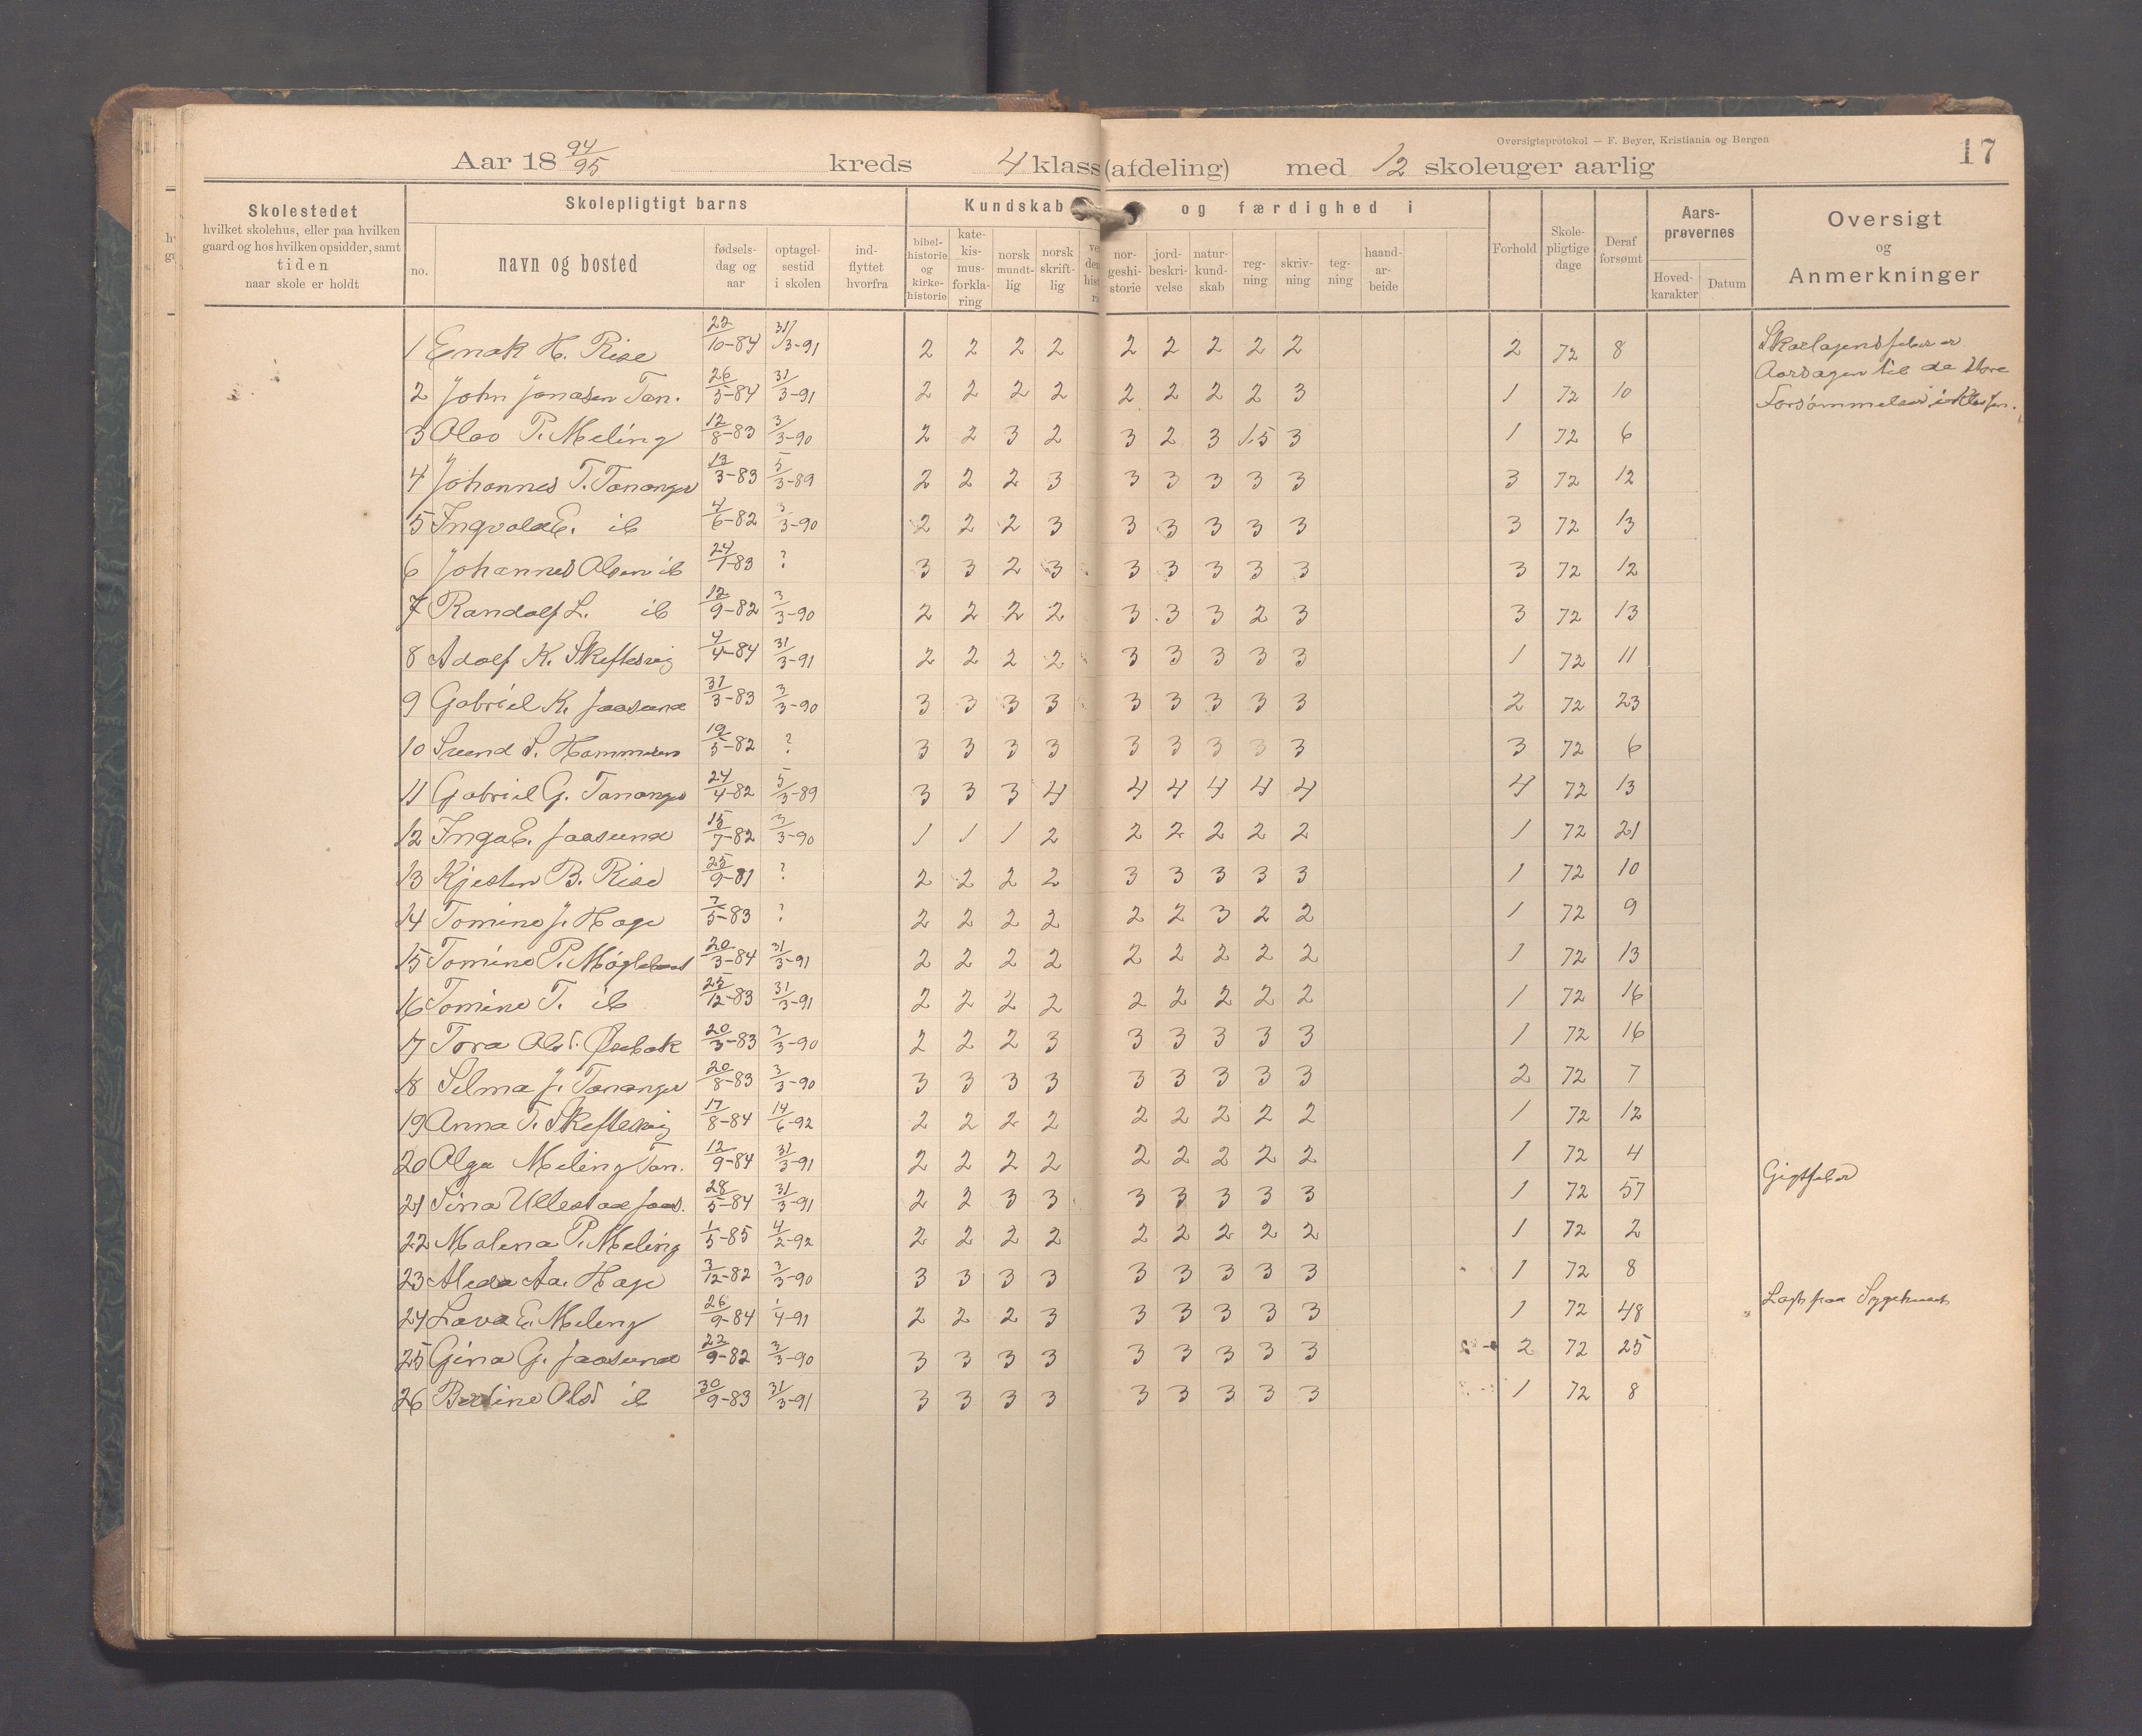 Oversigtsprotokol — F. Beyer, Kristiania og Bergen
17
Aar 18 94/95 kreds 4 klasse (afdeling) med 12 skoleuger aarlig
Skolestedet
hvilket skolehus, eller paa hvilken
gaard og hos hvilken opsidder, samt
tiden
naar skole er holdt
Skolepligtigt barns
no.
navn og bosted
fødsels-
dag og
aar
optagel-
sestid
i skolen
ind-
flyttet
hvorfra
Kundskab og færdighed i
bibel-
historie
og
kirke-
historie
kate-
kis-
mus-
forkla-
ring
norsk
mundt-
lig
norsk
skrift-
lig
nor-
geshi-
storie
jord-
beskri-
velse
natur-
kund-
skab
reg-
ning
skriv-
ning
teg-
ning
haand-
ar-
beide
Forhold
Skole-
pligtige
dage
Deraf
forsømt
Aars-
prøvernes
Hoved-
karakter
Datum
Oversigt
og
Anmerkninger
1 Enok H. Rise 22/10-84 31/3-91 2 2 2 2 2 2 2 2 2 2 72 8 Skarlagensfeber er
Aarsagen til de store
Forsømmelser i Klassen.
2 John Jonasen Tan. 26/5-84 31/3-91 2 2 2 2 2 2 2 2 3 1 72 10
3 Olav P. Meling 12/8-83 3/3-90 2 2 3 2 3 2 3 1.5 3 1 72 6
4 Johannes T. Tananger 13/3-83 5/3-89 2 2 2 3 3 3 3 3 3 3 72 12
5 Ingvald E. ib 4/6-82 3/3-90 2 2 2 3 3 3 3 3 3 3 72 13
6 Johannes Olsen ib 24/1-83 ? 3 3 2 3 3 3 3 3 3 3 72 12
7 Randolf L. ib 12/9-82 3/3-90 2 2 2 2 3 3 3 2 3 3 72 13
8 Adolf K. Skiftesvig 4/4-84 31/3-91 2 2 2 2 3 3 3 3 3 1 72 11
9 Gabriel K. Jaasund 31/3-83 3/3-90 3 3 3 3 3 3 3 3 3 2 72 23
10 Svend S. Hammeren 19/5-82 ? 3 3 3 3 3 3 3 3 3 3 72 6
11 Gabriel G. Tananger 24/4-82 5/3-89 3 3 3 4 4 4 4 4 4 4 72 13
12 Inga E. Jaasund 15/7-82 3/3-90 1 1 1 2 2 2 2 2 2 1 72 21
13 Kjesten B. Rise 25/9-81 ? 2 2 2 2 3 3 3 3 3 1 72 10
14 Tomine J. Hage 7/5-83 ? 2 2 2 2 2 2 3 2 2 1 72 9
15 Tomine P. 20/3-84 31/3-91 2 2 2 2 2 2 2 2 2 1 72 13
16 Tomine T. ib 25/12-83 31/3-91 2 2 2 2 2 2 2 2 2 1 72 16
17 Tora Olsd. 20/3-83 3/3-90 2 2 2 3 3 3 3 3 3 1 72 16
18 Selma J. Tananger 20/8-83 3/3-90 3 3 3 3 3 3 3 3 3 2 72 7
19 Anna T. Skiftesvig 17/8-84 14/6-92 2 2 2 2 2 2 2 2 2 1 72 12
20 Olga Meling Tan. 12/9-84 31/3-91 2 2 2 2 2 2 2 2 2 1 72 4
21 Sina Ullestad Jaas. 28/5-84 31/3-91 2 2 3 3 3 3 3 3 3 1 72 57 Gigtfeber
22 Malena P. Meling 1/5-85 4/2-92 2 2 2 2 2 2 2 2 2 1 72 2
23 Alida Aa. Hage 3/12-82 3/3-90 3 3 3 3 3 3 3 3 3 1 72 8
24 Lava E. Meling 26/9-84 1/4-91 2 2 2 3 3 3 3 3 3 1 72 48 Sygehuset
25 Gina G. Jaasund 22/9-82 3/3-90 3 3 3 3 3 3 3 3 3 2 72 25
26 Bertine Olsd ib 30/9-83 31/3-91 3 3 3 3 3 3 3 3 3 1 72 8